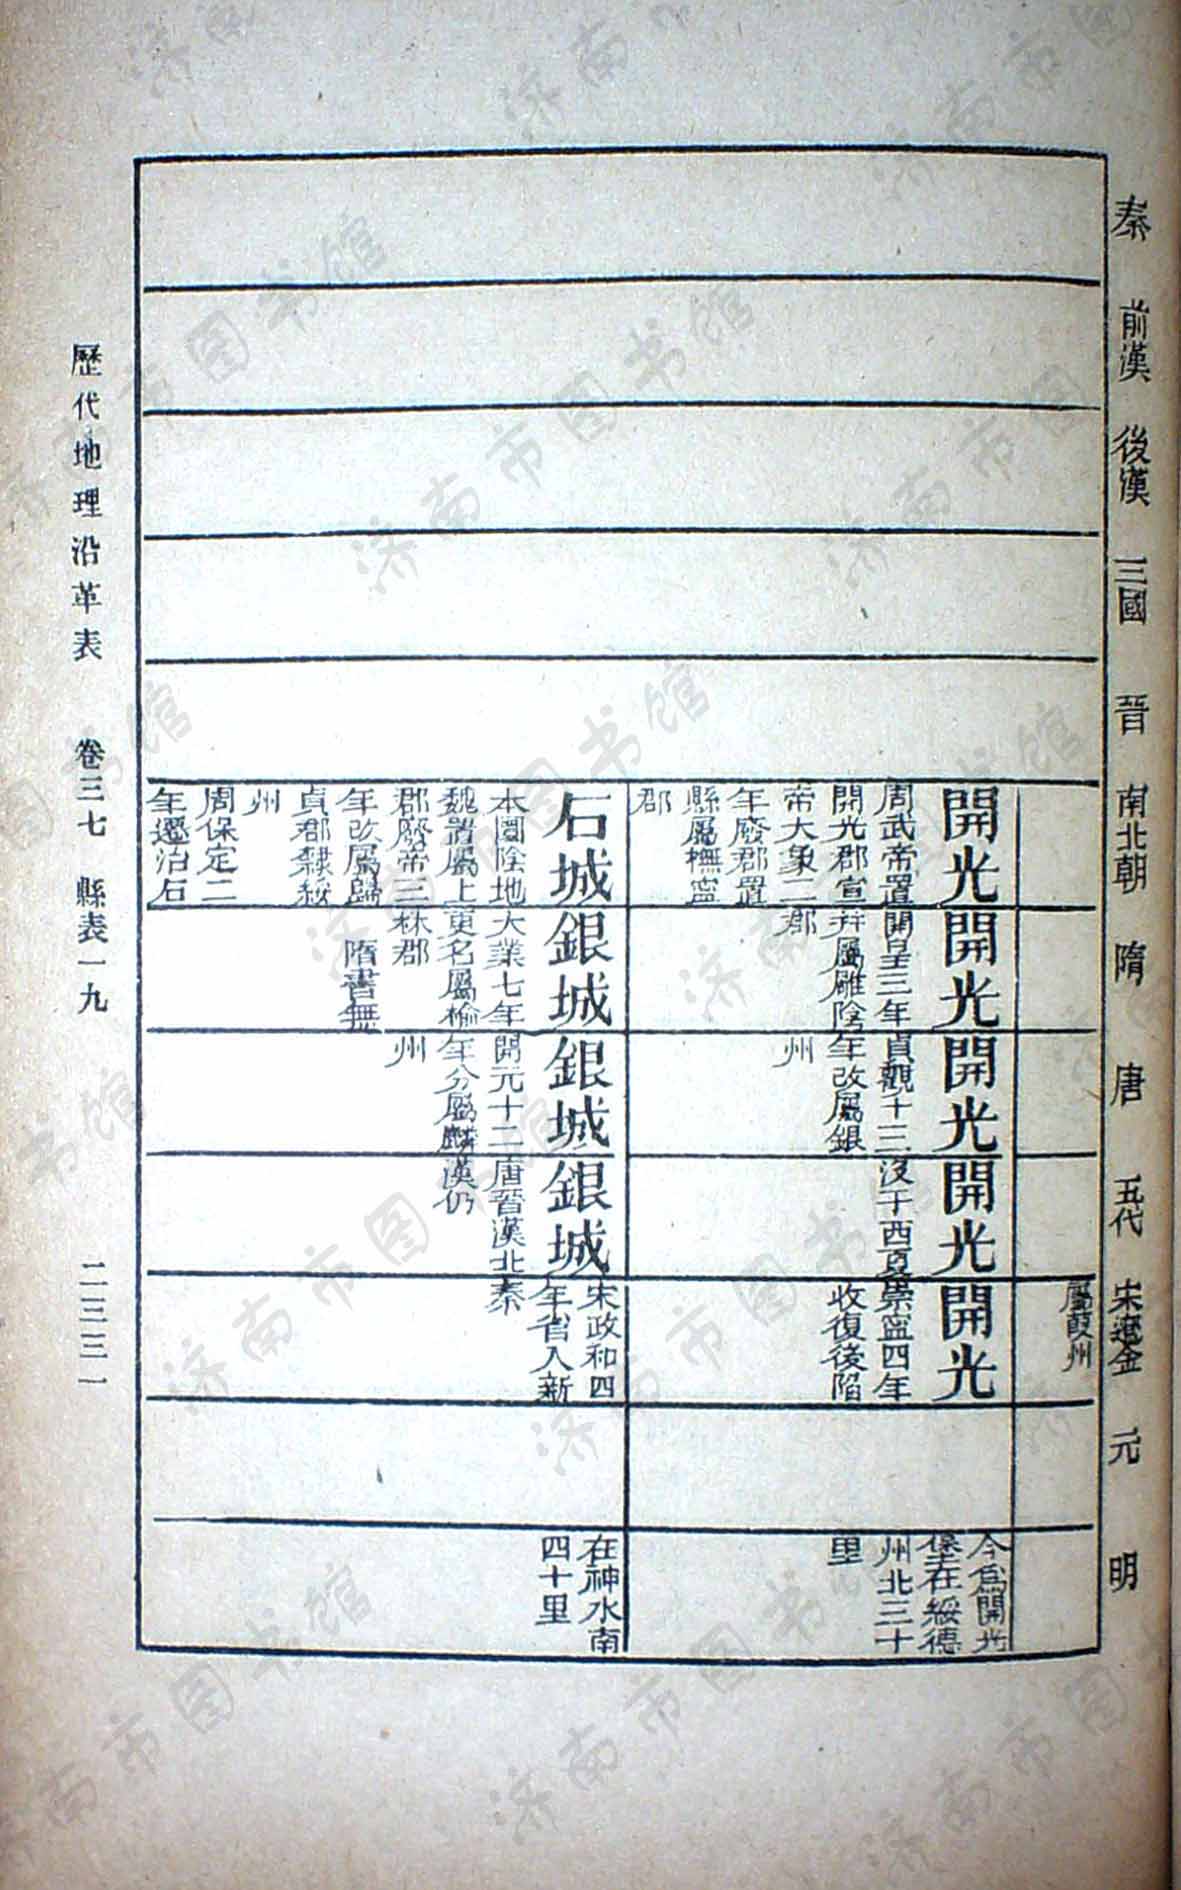 秦
前漢
後漢
三國
晉
南北朝
隋
唐
五代
宋遼金
元
明
屬葭州
開光
周武帝置
開光郡宣
帝大象二
年廢郡置
縣屬撫寧
郡
開光
開皇三年
并屬雕陰
郡
開光
貞觀十三
年改屬銀
州
開光
沒于西夏
開光
崇寧四年
收復後陷
今爲開光
堡在綏德
州北三十
里
石城
本圁陰地
魏置屬上
郡廢帝三
年改屬歸
貞郡隸綏
州
周保定二
年遷治石
銀城
大業七年
更名屬榆
林郡
隋書無
銀城
開元十二
年分屬麟
州
銀城
唐晉漢北
漢仍
宋政和四
年省入新
秦
在神水南
四十里
歷代地理沿革表 卷三七 縣表一九 二三三一
济南市图书馆